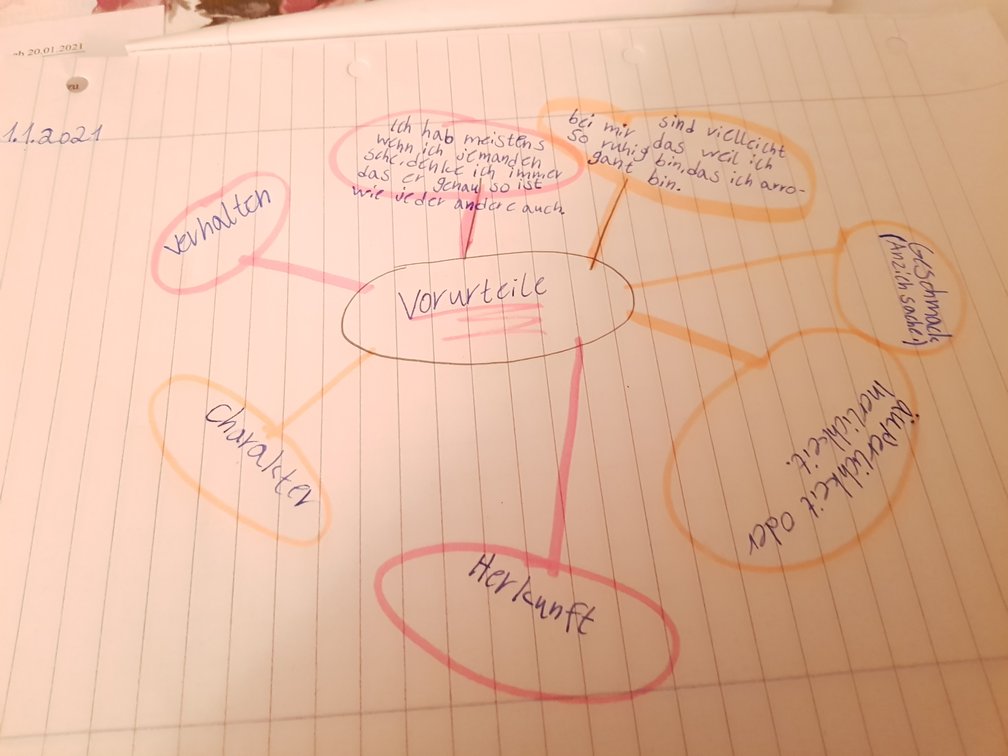 ab 20.01.2021
1.1.2021
Ich hab meistens
wenn ich jemanden
sehe, denke ich immer
das er genau so ist
wie jeder andere auch.
bei mir sind vielleicht
so ruhig das weil ich
bin, das ich arro-
gant bin.
verhalten
Vorurteile
Geschmack
(Anziehsachen)
Charakter
äußerlichkeit oder
inerlichkeit.
Herkunft